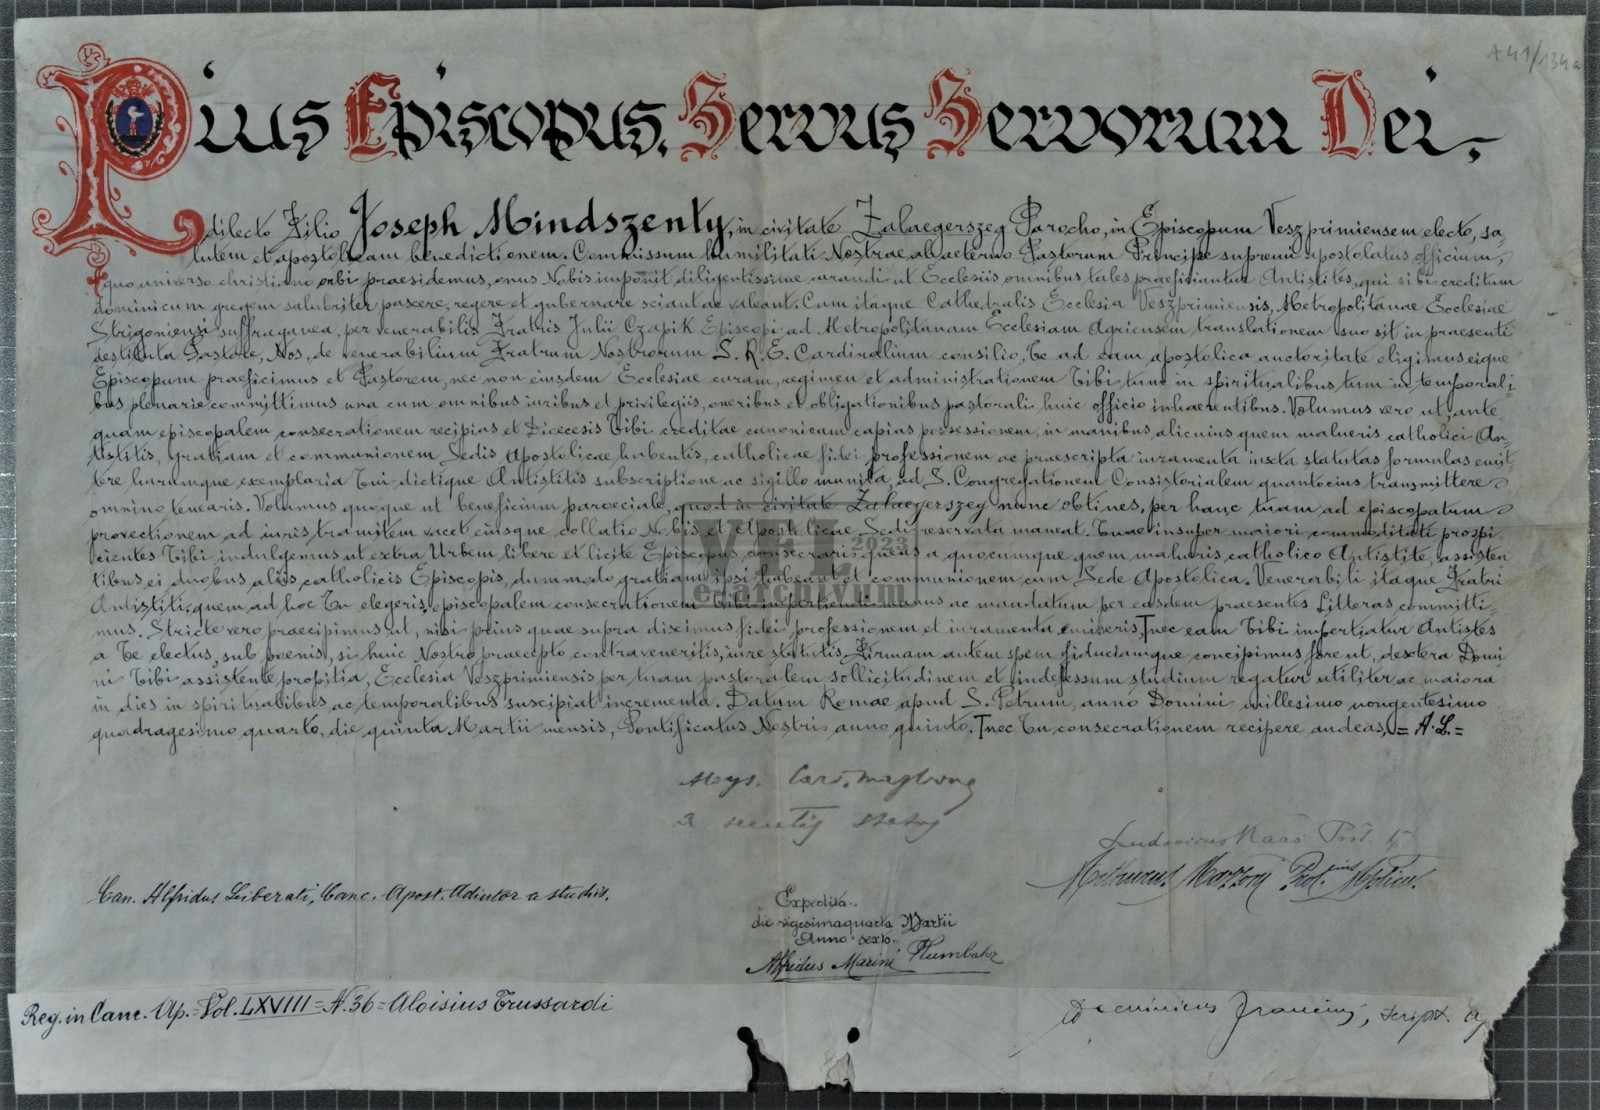 A41/134a
Pius Episcopus, Servus Servorum Dei,
dilecto Filio Joseph Mindszenty, in civitate Zalaegerszeg Parocho, in Episcopum Veszprimiensem electo, sa-
lutem et apostolicam benedictionem. Commissum humilitati Nostrae ab aeterno Pastorum Principe supremi apostolatus officium,
quo universo christiano orbi praesidemus, onus Nobis imponit diligentissime curandi ut Ecclesiis omnibus tales praeficiantur Antistites, qui sibi creditum
dominicum gregem salubriter pascere, regere et gubernare sciant ac valeant. Cum itaque Cathedralis Ecclesia Veszprimiensis, Metropolitanae Ecclesiae
Strigoniensi suffraganea, per venerabilis Fratris Julii Czapik Episcopi ad Metropolitanam Ecclesiam Agriensem translationem suo sit in praesenti
destituta Pastore, Nos, de venerabilium Fratrum Nostrorum S. R. E. Cardinalium consilio, Te ad eam apostolica auctoritate eligimus eique
Episcopum praeficimus et Pastorem, nec non eiusdem Ecclesiae curam, regimen et administrationem Tibi tum in spiritualibus tum in temporali-
bus plenarie committimus una cum omnibus iuribus et privilegiis, oneribus et obligationibus pastorali huic officio inhaerentibus. Volumus vero ut, ante-
quam episcopalem consecrationem recipias et Dioecesis Tibi creditae canonicam capias possessionem, in manibus alicuius quem malueris catholici An-
tistitis, gratiam et communionem Sedis Apostolicae habentis, catholicae fidei professionem ac praescripta iuramenta iuxta statutas formulas emit-
tere harumque exemplaria Tui dictique Antistitis subscriptione ac sigillo munita, ad S. Congregationem Consistorialem quantocius transmittere
omnino tenearis. Volumus quoque ut beneficium paroeciale, quod in civitate Zalaegerszeg nunc obtines, per hanc tuam ad episcopatum
provectionem ad iuris tramitem vacet eiusque collatio Nobis et Apostolicae Sedi reservata maneat. Tuae insuper maiori commoditati prospi-
cientes Tibi indulgemus ut extra Urbem libere et licite Episcopus consecrari queas a quocumque quem malueris catholico Antistite, assisten-
tibus ei duobus aliis catholicis Episcopis, dummodo gratiam ipsi habeant et communionem cum Sede Apostolica. Venerabili itaque Fratri
Antistiti, quem ad hoc Tu elegeris, episcopalem consecrationem Tibi impertiendi munus ac mandatum per easdem praesentes Litteras committi-
mus. Stricte vero praecipimus ut, nisi prius quae supra diximus fidei professionem et iuramenta emiseris, nec eam Tibi impertiatur Antistes
a Te electus, sub poenis, si huic Nostro praecepto contraveneritis, iure statutis. Firmam autem spem fiduciamque concipimus fore ut, dextera Domi-
ni Tibi assistente propitia, Ecclesia Veszprimiensis per tuam pastoralem sollicitudinem et indefessum studium regatur utiliter ac maiora
in dies in spiritualibus ac temporalibus suscipiat incrementa. Datum Romae apud S. Petrum, anno Domini millesimo nongentesimo
quadragesimo quarto, die quinta Martii mensis, Pontificatus Nostri anno quinto. nec Tu consecrationem recipere audeas, = A. L. =
VFL 2023
e-archivum
Aloys. Card. Maglione
a secretis status
Ludovicus Kaas Prot.
Can. Alfridus Liberati, Canc. Apost. Adiutor a studiis.
Expedita
die vigesimaquarta Martii
Anno sexto.
Alfridus Marini Plumbator
Reg. in Canc. Ap. Vol. LXVIII = N. 36 = Aloisius Trussardi
Dominicus Francini, script.